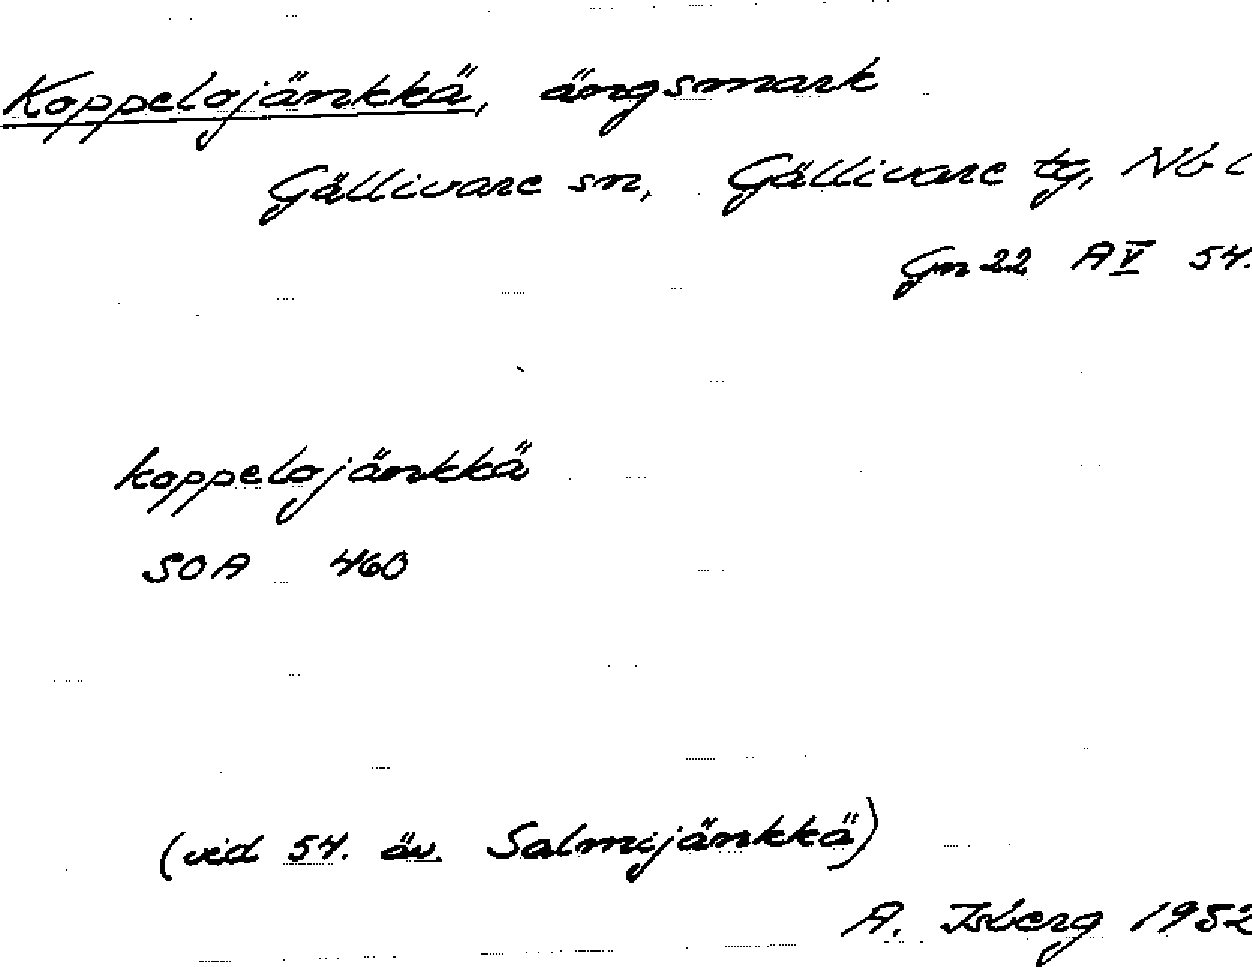 Koppelojänkkä, ängsmark
Gällivare sn, Gällivare tg, Nbl
Gn 22 A V 54.
koppelojänkkä
SOA 460
(vid 54. äv. Salmijänkkä)
A. Isberg 1952